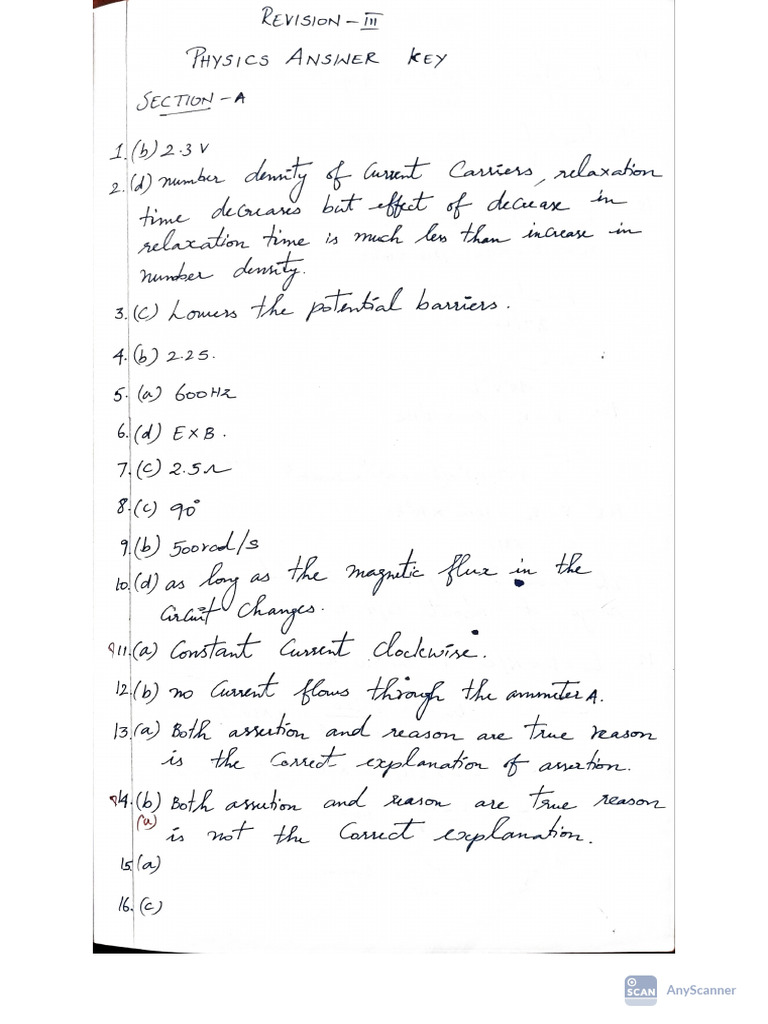 REVISION - III
PHYSICS ANSWER KEY
SECTION - A
1. (b) 2.3 V
2. (d) number density of current carriers, relaxation
time decreases but effect of decrease in
relaxation time is much less than increase in
number density.
3. (c) Lowers the potential barriers.
4. (b) 2.25.
5. (a) 600Hz
6. (d) E×B.
7. (c) 2.5Ω
8. (c) 90°
9. (b) 500rad/s
10. (d) as long as the magnetic flux in the
circuit changes.
11. (a) Constant current clockwise.
12. (b) no current flows through the ammeter A.
13. (a) Both assertion and reason are true reason
is the correct explanation of assertion.
14. (b) Both assertion and reason are true reason
(a) is not the correct explanation.
15. (a)
16. (c)
SCAN AnyScanner